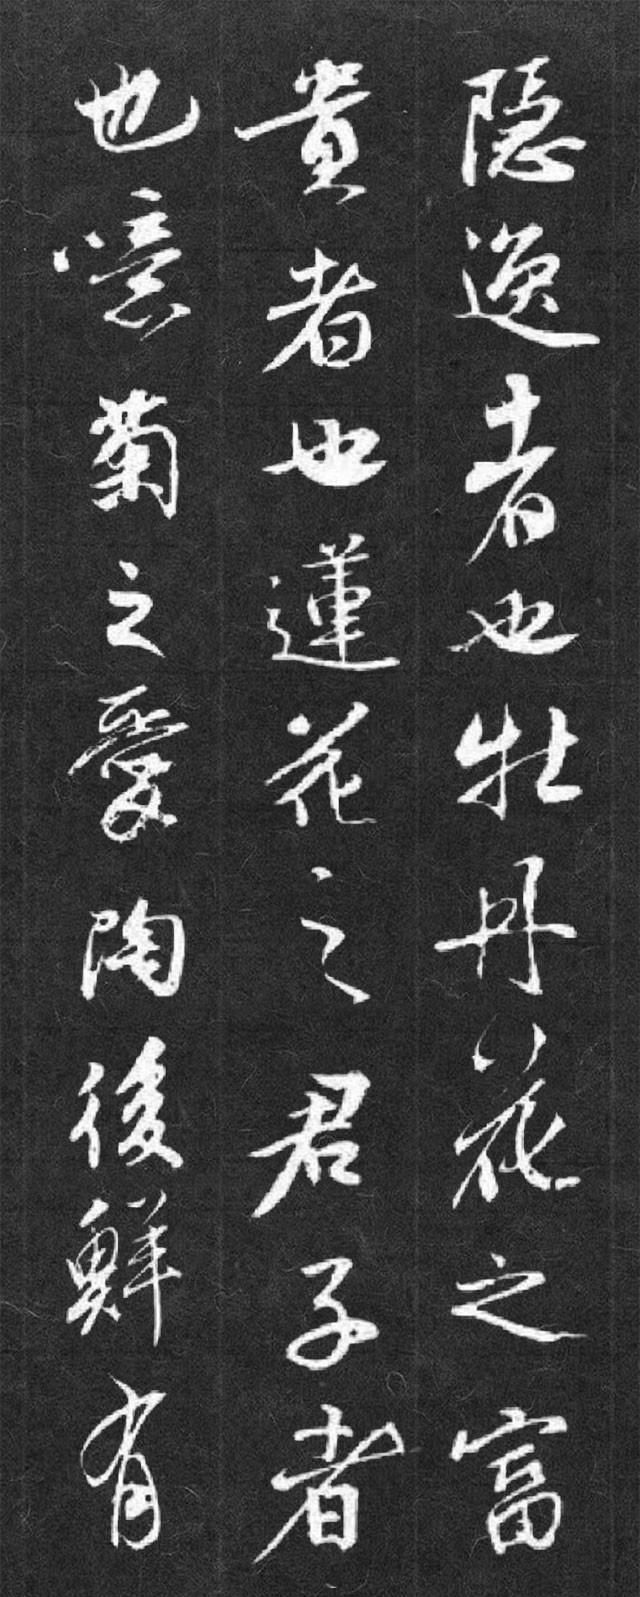 隱逸者也牡丹花之富
貴者也蓮花之君子者
也噫菊之愛陶後鮮有